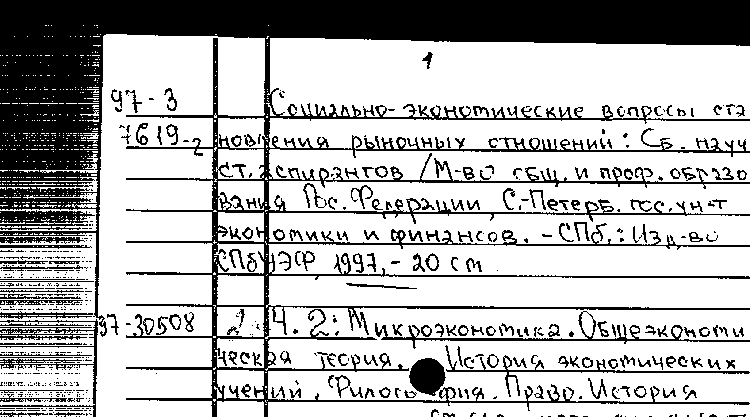 1
97-3 Социально-экономические вопросы ста
7619-2 новления рыночных отношений: Сб. науч
ст. аспирантов / М-во общ. и проф. образо
вания Рос. Федерации, С.-Петерб. гос. ун-т
экономики и финансов. - СПб.: Изд-во
СПбУЭФ, 1997, - 20 см
97-30508 2. Ч. 2: Микроэкономика. Общеэкономи
ческая теория. История экономических
учений. Философия. Право. История